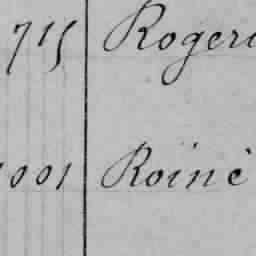 715 Roger
001 Roinè